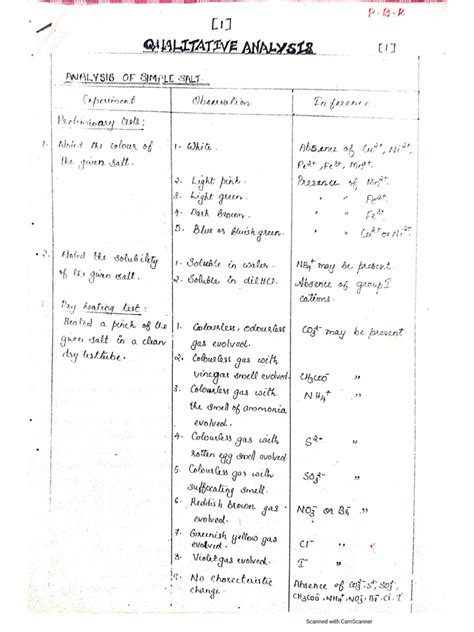 P-B-R
[1]
QUALITATIVE ANALYSIS [1]
ANALYSIS OF SIMPLE SALT.
Experiment Observation Inference
Preliminary tests:
1. Noted the colour of the given salt. 1. White. Absence of Cu²⁺, Ni²⁺, Fe²⁺, Fe³⁺, Mn²⁺.
2. Light pink. Presence of Mn²⁺
3. Light green. " " Fe²⁺.
4. Dark Brown. " " Fe³⁺.
5. Blue or bluish green. " " Cu²⁺ or Ni²⁺.
2. Noted the solubility of the given salt. 1. Soluble in water. NH₄⁺ may be present.
2. Soluble in dil HCl. Absence of group I cations.
Dry heating test:
Heated a pinch of the given salt in a clean dry testtube. 1. Colourless, odourless gas evolved. CO₃²⁻ may be present
2. Colourless gas with vinegar smell evolved. CH₃COO⁻ "
3. Colourless gas with the smell of ammonia evolved. NH₄⁺ "
4. Colourless gas with rotten egg smell evolved. S²⁻ "
5. Colourless gas with suffocating smell. SO₃²⁻ "
6. Reddish brown gas evolved. NO₃⁻ or Br⁻ "
7. Greenish yellow gas evolved. Cl⁻ "
8. Violet gas evolved. I⁻ "
9. No characteristic change. Absence of CO₃²⁻, S²⁻, SO₃²⁻, CH₃COO⁻, NH₄⁺, NO₃⁻, Br⁻, Cl⁻, I⁻
Scanned with CamScanner